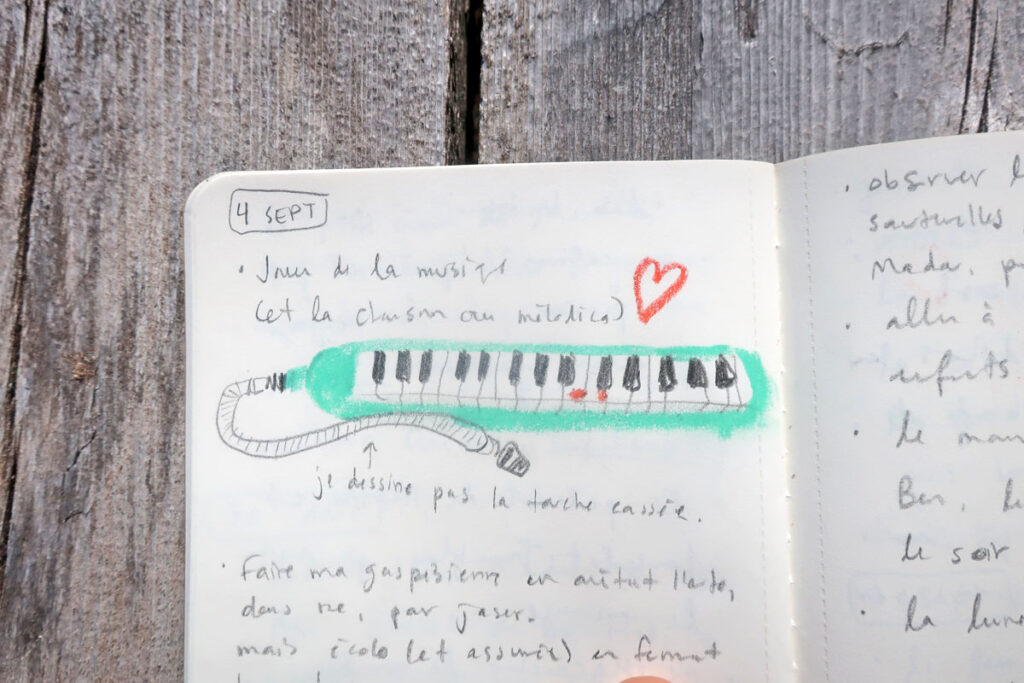 4 SEPT
• Jouer de la musique
(et la chanson au mélodica)
je dessine pas la touche cassée.
• Faire ma gaspésienne en arrêtant l'auto,
dans rue, par jaser.
mais écolo (et assumée) en fermant
• observer
sauterelles
Mada,
• aller à
• le
Ben,
le soir
• la lune